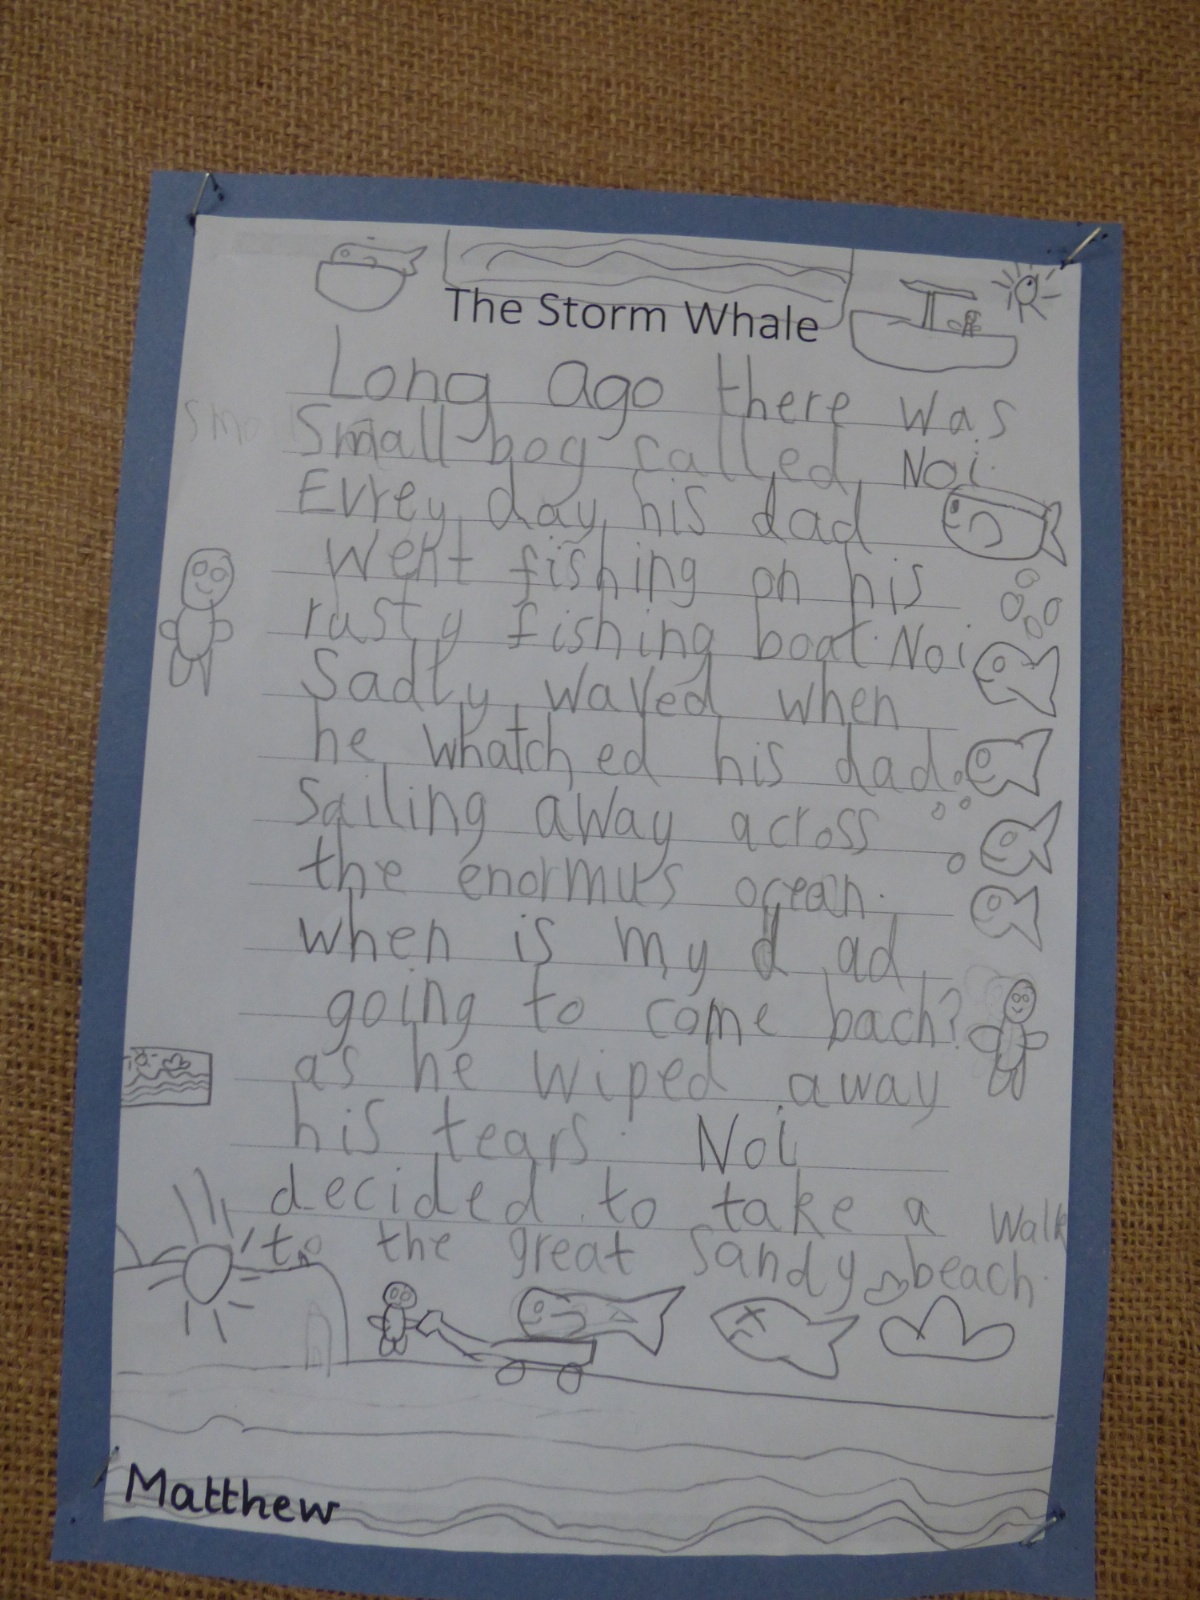 The Storm Whale
Long ago there was
Small boy called Noi.
Evrey day his dad
went fishing on his
rusty fishing boat. Noi
Sadly waved when
he whatched his dad
sailing away across
the enormus ocean.
when is my dad
going to come bach?
as he wiped away
his tears. Noi
decided to take a walk
to the great sandy beach.
Matthew